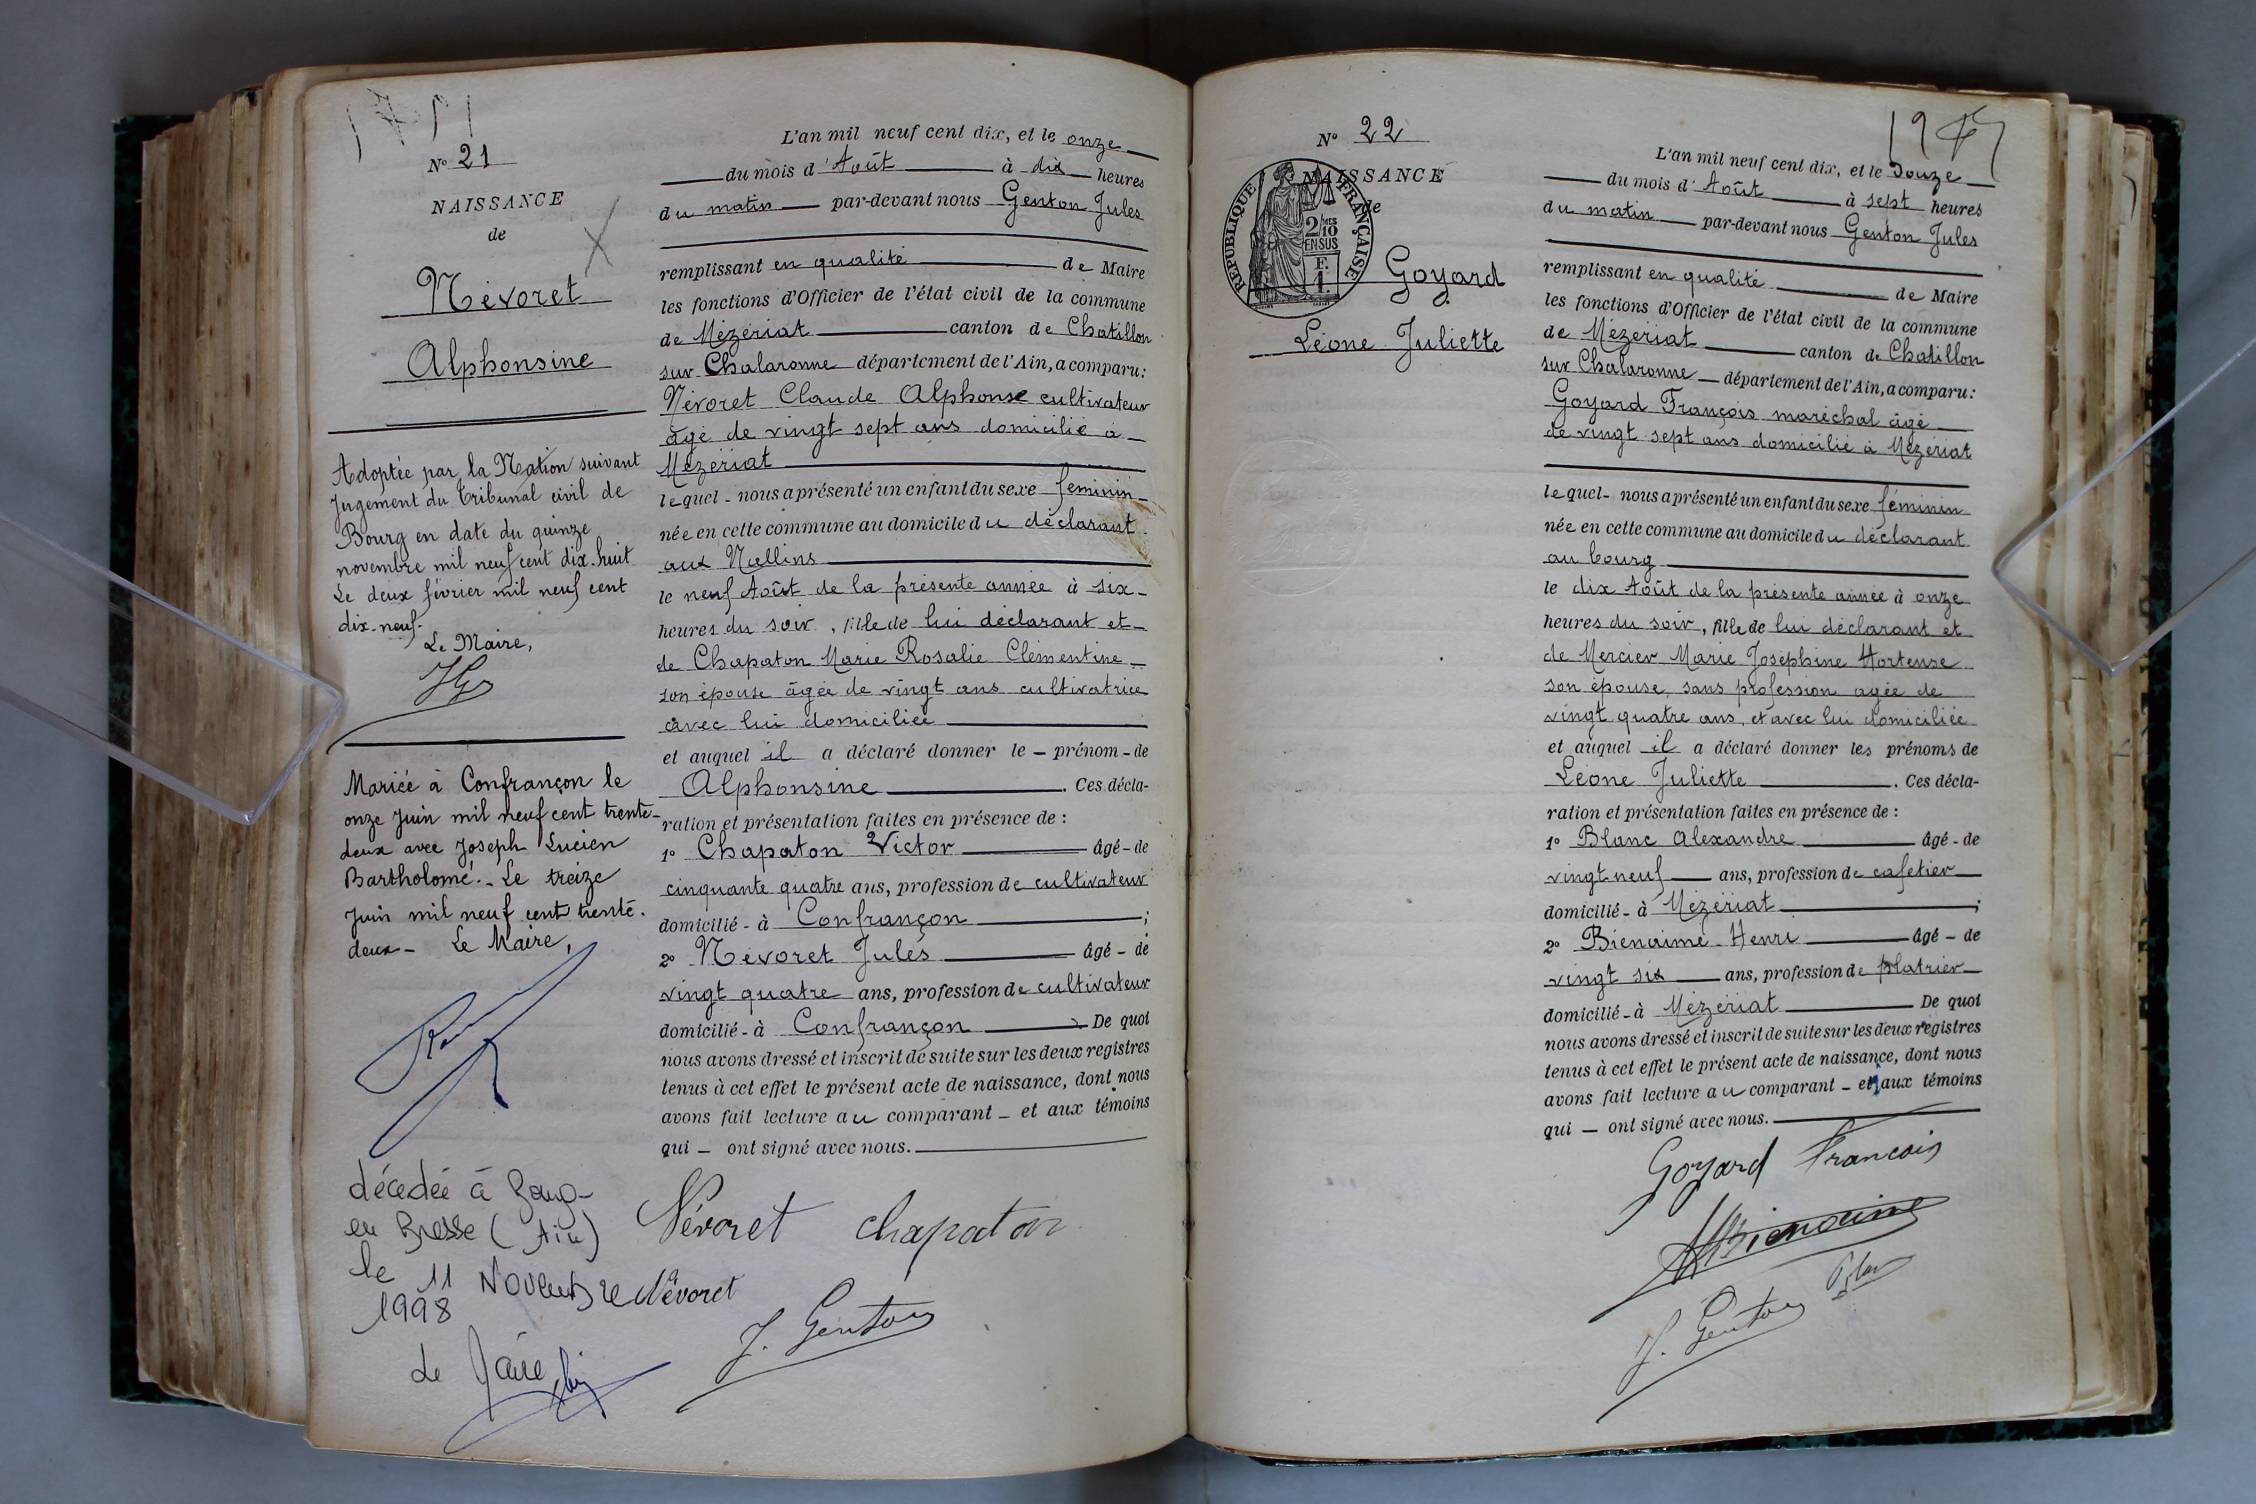 N° 21
NAISSANCE
de
Névoret
Alphonsine
Adoptée par la Nation suivant
Jugement du Tribunal civil de
Bourg en date du quinze
novembre mil neuf cent dix-huit
Le deux février mil neuf cent
dix-neuf.
Le Maire,
Mariée à Confrançon le
onze Juin mil neuf cent trente-
deux avec Joseph Lucien
Bartholomé. - Le treize
Juin mil neuf cent trente-
deux - Le Maire,
décédée à Bourg-
en Bresse (Ain)
le 11 Novembre
1998
Le Maire
L'an mil neuf cent dix, et le onze
du mois d'Août à dix heures
du matin par-devant nous Genton Jules
remplissant en qualité de Maire
les fonctions d'Officier de l'état civil de la commune
de Mézériat canton de Chatillon
sur Chalaronne département de l'Ain, a comparu:
Névoret Claude Alphonse cultivateur
âgé de vingt sept ans domicilié à
Mézériat
lequel - nous a présenté un enfant du sexe féminin
née en cette commune au domicile du déclarant
aux
le neuf Août de la présente année à six
heures du soir, fille de lui déclarant et
de Chapaton Marie Rosalie Clémentine
son épouse âgée de vingt ans cultivatrice
avec lui domiciliée
et auquel il a déclaré donner le - prénom - de
Alphonsine. Ces décla-
ration et présentation faites en présence de :
1° Chapaton Victor âgé - de
cinquante quatre ans, profession de cultivateur
domicilié - à Confrançon ;
2° Névoret Jules âgé - de
vingt quatre ans, profession de cultivateur
domicilié - à Confrançon De quoi
nous avons dressé et inscrit de suite sur les deux registres
tenus à cet effet le présent acte de naissance, dont nous
avons fait lecture au comparant - et aux témoins
qui - ont signé avec nous.
Névoret chapaton
Névoret
J. Genton
N° 22
NAISSANCE
de
REPUBLIQUE FRANÇAISE
2/10 MES
EN SUS
F.
1.
Goyard
Léone Juliette
L'an mil neuf cent dix, et le Douze
du mois d'Août à sept heures
du matin par-devant nous Genton Jules
remplissant en qualité de Maire
les fonctions d'Officier de l'état civil de la commune
de Mézériat canton de Chatillon
sur Chalaronne département de l'Ain, a comparu:
Goyard François maréchal âgé
de vingt sept ans domicilié à Mézériat
lequel - nous a présenté un enfant du sexe féminin
née en cette commune au domicile du déclarant
au bourg
le dix Août de la présente année à onze
heures du soir, fille de lui déclarant et
de Mercier Marie Joséphine Hortense
son épouse, sans profession agée de
vingt quatre ans, et avec lui domiciliée
et auquel il a déclaré donner les prénoms de
Léone Juliette. Ces décla-
ration et présentation faites en présence de :
1° Blanc Alexandre âgé - de
vingt neuf ans, profession de cafetier
domicilié - à Mézériat ;
2° Bienaimé Henri âgé - de
vingt six ans, profession de platrier
domicilié - à Mézériat De quoi
nous avons dressé et inscrit de suite sur les deux registres
tenus à cet effet le présent acte de naissance, dont nous
avons fait lecture au comparant - et aux témoins
qui - ont signé avec nous.
Goyard Francois
HBienaimé
Blanc
J. Genton